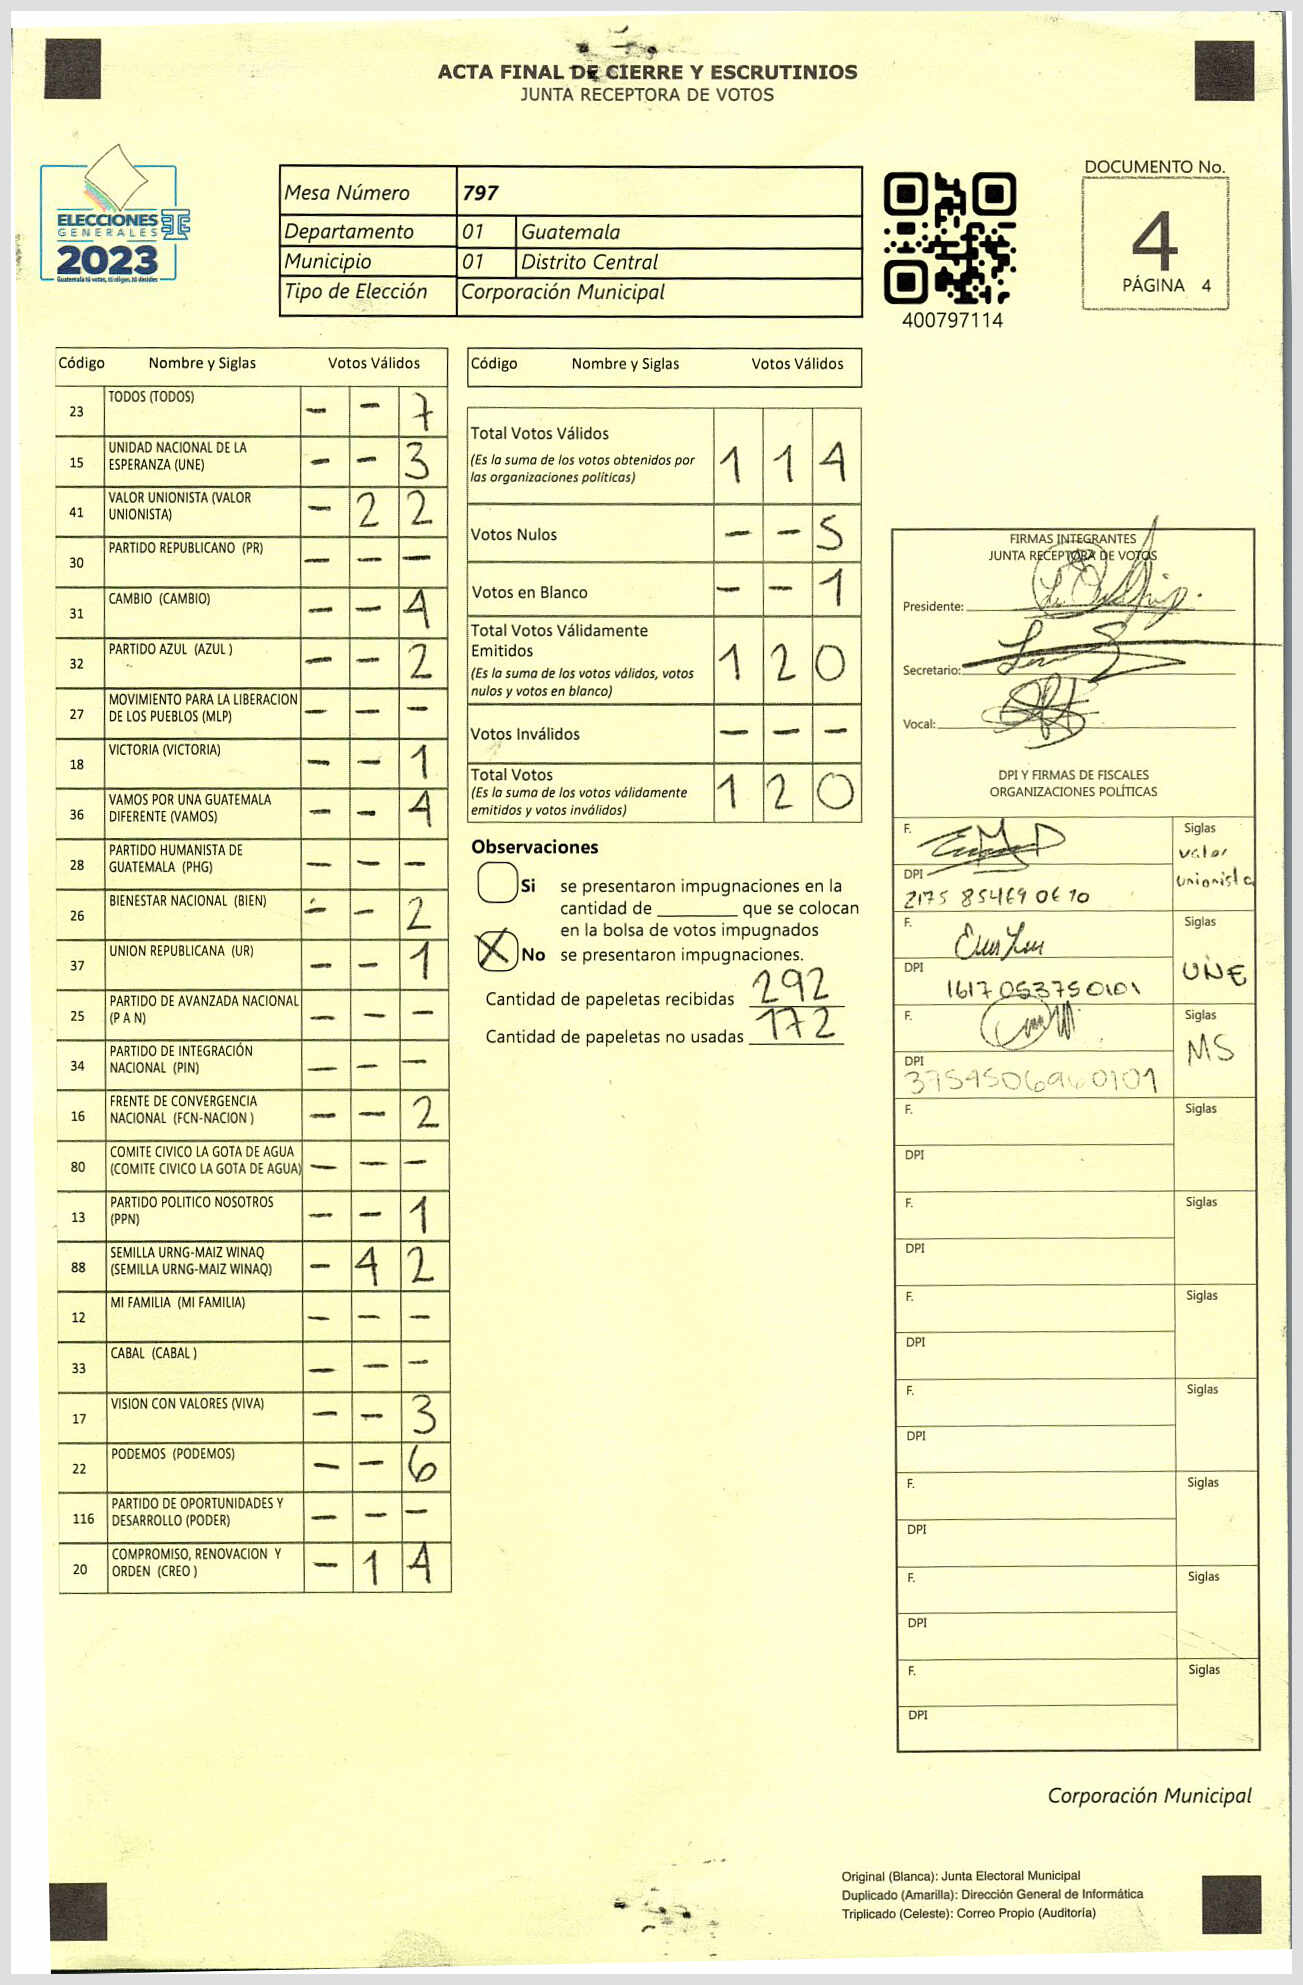 ACTA FINAL DE CIERRE Y ESCRUTINIOS
JUNTA RECEPTORA DE VOTOS
ELECCIONES
GENERALES
2023
Guatemala tú votas, tú eliges, tú decides
Mesa Número 797
Departamento 01 Guatemala
Municipio 01 Distrito Central
Tipo de Elección Corporación Municipal
400797114
DOCUMENTO No.
4
PÁGINA 4
Código Nombre y Siglas Votos Válidos
23 TODOS (TODOS) - - 7
15 UNIDAD NACIONAL DE LA
ESPERANZA (UNE) - - 3
41 VALOR UNIONISTA (VALOR
UNIONISTA) - 2 2
30 PARTIDO REPUBLICANO (PR) - - -
31 CAMBIO (CAMBIO) - - 4
32 PARTIDO AZUL (AZUL ) - - 2
27 MOVIMIENTO PARA LA LIBERACION
DE LOS PUEBLOS (MLP) - - -
18 VICTORIA (VICTORIA) - - 1
36 VAMOS POR UNA GUATEMALA
DIFERENTE (VAMOS) - - 4
28 PARTIDO HUMANISTA DE
GUATEMALA (PHG) - - -
26 BIENESTAR NACIONAL (BIEN) - - 2
37 UNION REPUBLICANA (UR) - - 1
25 PARTIDO DE AVANZADA NACIONAL
(P A N) - - -
34 PARTIDO DE INTEGRACIÓN
NACIONAL (PIN) - - -
16 FRENTE DE CONVERGENCIA
NACIONAL (FCN-NACION ) - - 2
80 COMITE CIVICO LA GOTA DE AGUA
(COMITE CIVICO LA GOTA DE AGUA) - - -
13 PARTIDO POLITICO NOSOTROS
(PPN) - - 1
88 SEMILLA URNG-MAIZ WINAQ
(SEMILLA URNG-MAIZ WINAQ) - 4 2
12 MI FAMILIA (MI FAMILIA) - - -
33 CABAL (CABAL ) - - -
17 VISION CON VALORES (VIVA) - - 3
22 PODEMOS (PODEMOS) - - 6
116 PARTIDO DE OPORTUNIDADES Y
DESARROLLO (PODER) - - -
20 COMPROMISO, RENOVACION Y
ORDEN (CREO ) - 1 4
Código Nombre y Siglas Votos Válidos
Total Votos Válidos
(Es la suma de los votos obtenidos por
las organizaciones políticas) 1 1 4
Votos Nulos - - 5
Votos en Blanco - - 1
Total Votos Válidamente
Emitidos
(Es la suma de los votos válidos, votos
nulos y votos en blanco) 1 2 0
Votos Inválidos - - -
Total Votos
(Es la suma de los votos válidamente
emitidos y votos inválidos) 1 2 0
Observaciones
Si se presentaron impugnaciones en la
cantidad de ________ que se colocan
en la bolsa de votos impugnados
X No se presentaron impugnaciones.
Cantidad de papeletas recibidas 292
Cantidad de papeletas no usadas 172
FIRMAS INTEGRANTES
JUNTA RECEPTORA DE VOTOS
Presidente:
Secretario:
Vocal:
DPI Y FIRMAS DE FISCALES
ORGANIZACIONES POLÍTICAS
F. Siglas
valor
unionista
DPI
2175 85469 0610
F. Siglas
UNE
DPI
1617 053750101
F. Siglas
MS
DPI
F. Siglas
DPI
F. Siglas
DPI
F. Siglas
DPI
F. Siglas
DPI
F. Siglas
DPI
F. Siglas
DPI
F. Siglas
DPI
Corporación Municipal
Original (Blanca): Junta Electoral Municipal
Duplicado (Amarilla): Dirección General de Informática
Triplicado (Celeste): Correo Propio (Auditoría)